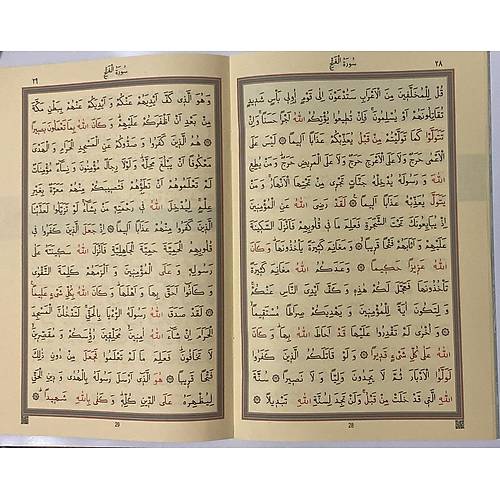 سُورَةُ الْفَتْحِ
٢٨
قُلْ لِلْمُخَلَّفِينَ مِنَ الْاَعْرَابِ سَتُدْعَوْنَ اِلٰى قَوْمٍ اُولِى بَاْسٍ شَدِيدٍ
تُقَاتِلُونَهُمْ اَوْ يُسْلِمُونَ فَاِنْ تُطِيعُوا يُؤْتِكُمُ اللّٰهُ اَجْرًا حَسَنًا وَاِنْ
تَتَوَلَّوْا كَمَا تَوَلَّيْتُمْ مِنْ قَبْلُ يُعَذِّبْكُمْ عَذَابًا اَلِيمًا ۞ لَيْسَ عَلَى
الْاَعْمٰى حَرَجٌ وَلَا عَلَى الْاَعْرَجِ حَرَجٌ وَلَا عَلَى الْمَرِيضِ حَرَجٌ وَمَنْ يُطِعِ
اللّٰهَ وَ رَسُولَهُ يُدْخِلْهُ جَنَّاتٍ تَجْرِى مِنْ تَحْتِهَا الْاَنْهَارُ وَ مَنْ
يَتَوَلَّ يُعَذِّبْهُ عَذَابًا اَلِيمًا ۞ لَقَدْ رَضِىَ اللّٰهُ عَنِ الْمُؤْمِنِينَ
اِذْ يُبَايِعُونَكَ تَحْتَ الشَّجَرَةِ فَعَلِمَ مَا فِى قُلُوبِهِمْ فَاَنْزَلَ السَّكِينَةَ
عَلَيْهِمْ وَ اَثَابَهُمْ فَتْحًا قَرِيبًا ۞ وَ مَغَانِمَ كَثِيرَةً يَاْخُذُونَهَا وَ كَانَ
اللّٰهُ عَزِيزًا حَكِيمًا ۞ وَعَدَكُمُ اللّٰهُ مَغَانِمَ كَثِيرَةً
تَاْخُذُونَهَا فَعَجَّلَ لَكُمْ هٰذِهِ وَ كَفَّ اَيْدِىَ النَّاسِ عَنْكُمْ
وَ لِتَكُونَ اٰيَةً لِلْمُؤْمِنِينَ وَ يَهْدِيَكُمْ صِرَاطًا مُسْتَقِيمًا ۞
وَ اُخْرٰى لَمْ تَقْدِرُوا عَلَيْهَا قَدْ اَحَاطَ اللّٰهُ بِهَا وَ كَانَ
اللّٰهُ عَلٰى كُلِّ شَىْءٍ قَدِيرًا ۞ وَ لَوْ قَاتَلَكُمُ الَّذِينَ كَفَرُوا
لَوَلَّوُا الْاَدْبَارَ ثُمَّ لَا يَجِدُونَ وَلِيًّا وَ لَا نَصِيرًا ۞ سُنَّةَ
اللّٰهِ الَّتِى قَدْ خَلَتْ مِنْ قَبْلُ وَلَنْ تَجِدَ لِسُنَّةِ اللّٰهِ تَبْدِيلًا ۞
28
سُورَةُ الْفَتْحِ
٢٩
وَ هُوَ الَّذِى كَفَّ اَيْدِيَهُمْ عَنْكُمْ وَ اَيْدِيَكُمْ عَنْهُمْ بِبَطْنِ مَكَّةَ
مِنْ بَعْدِ اَنْ اَظْفَرَكُمْ عَلَيْهِمْ وَ كَانَ اللّٰهُ بِمَا تَعْمَلُونَ بَصِيرًا
۞ هُمُ الَّذِينَ كَفَرُوا وَ صَدُّوكُمْ عَنِ الْمَسْجِدِ الْحَرَامِ وَ الْهَدْىَ
مَعْكُوفًا اَنْ يَبْلُغَ مَحِلَّهُ وَلَوْلَا رِجَالٌ مُؤْمِنُونَ وَ نِسَاءٌ مُؤْمِنَاتٌ
لَمْ تَعْلَمُوهُمْ اَنْ تَطَؤُهُمْ فَتُصِيبَكُمْ مِنْهُمْ مَعَرَّةٌ بِغَيْرِ
عِلْمٍ لِيُدْخِلَ اللّٰهُ فِى رَحْمَتِهِ مَنْ يَشَاءُ لَوْ تَزَيَّلُوا لَعَذَّبْنَا
الَّذِينَ كَفَرُوا مِنْهُمْ عَذَابًا اَلِيمًا ۞ اِذْ جَعَلَ الَّذِينَ كَفَرُوا فِى
قُلُوبِهِمُ الْحَمِيَّةَ حَمِيَّةَ الْجَاهِلِيَّةِ فَاَنْزَلَ اللّٰهُ سَكِينَتَهُ عَلٰى
رَسُولِهِ وَ عَلَى الْمُؤْمِنِينَ وَ اَلْزَمَهُمْ كَلِمَةَ التَّقْوٰى
وَ كَانُوا اَحَقَّ بِهَا وَ اَهْلَهَا وَ كَانَ اللّٰهُ بِكُلِّ شَىْءٍ عَلِيمًا
۞ لَقَدْ صَدَقَ اللّٰهُ رَسُولَهُ الرُّءْيَا بِالْحَقِّ لَتَدْخُلُنَّ الْمَسْجِدَ
الْحَرَامَ اِنْ شَاءَ اللّٰهُ اٰمِنِينَ مُحَلِّقِينَ رُؤُسَكُمْ وَ مُقَصِّرِينَ
لَا تَخَافُونَ فَعَلِمَ مَا لَمْ تَعْلَمُوا فَجَعَلَ مِنْ دُونِ ذٰلِكَ
فَتْحًا قَرِيبًا ۞ هُوَ الَّذِى اَرْسَلَ رَسُولَهُ بِالْهُدٰى وَ دِينِ الْحَقِّ
لِيُظْهِرَهُ عَلَى الدِّينِ كُلِّهِ وَ كَفٰى بِاللّٰهِ شَهِيدًا ۞
29